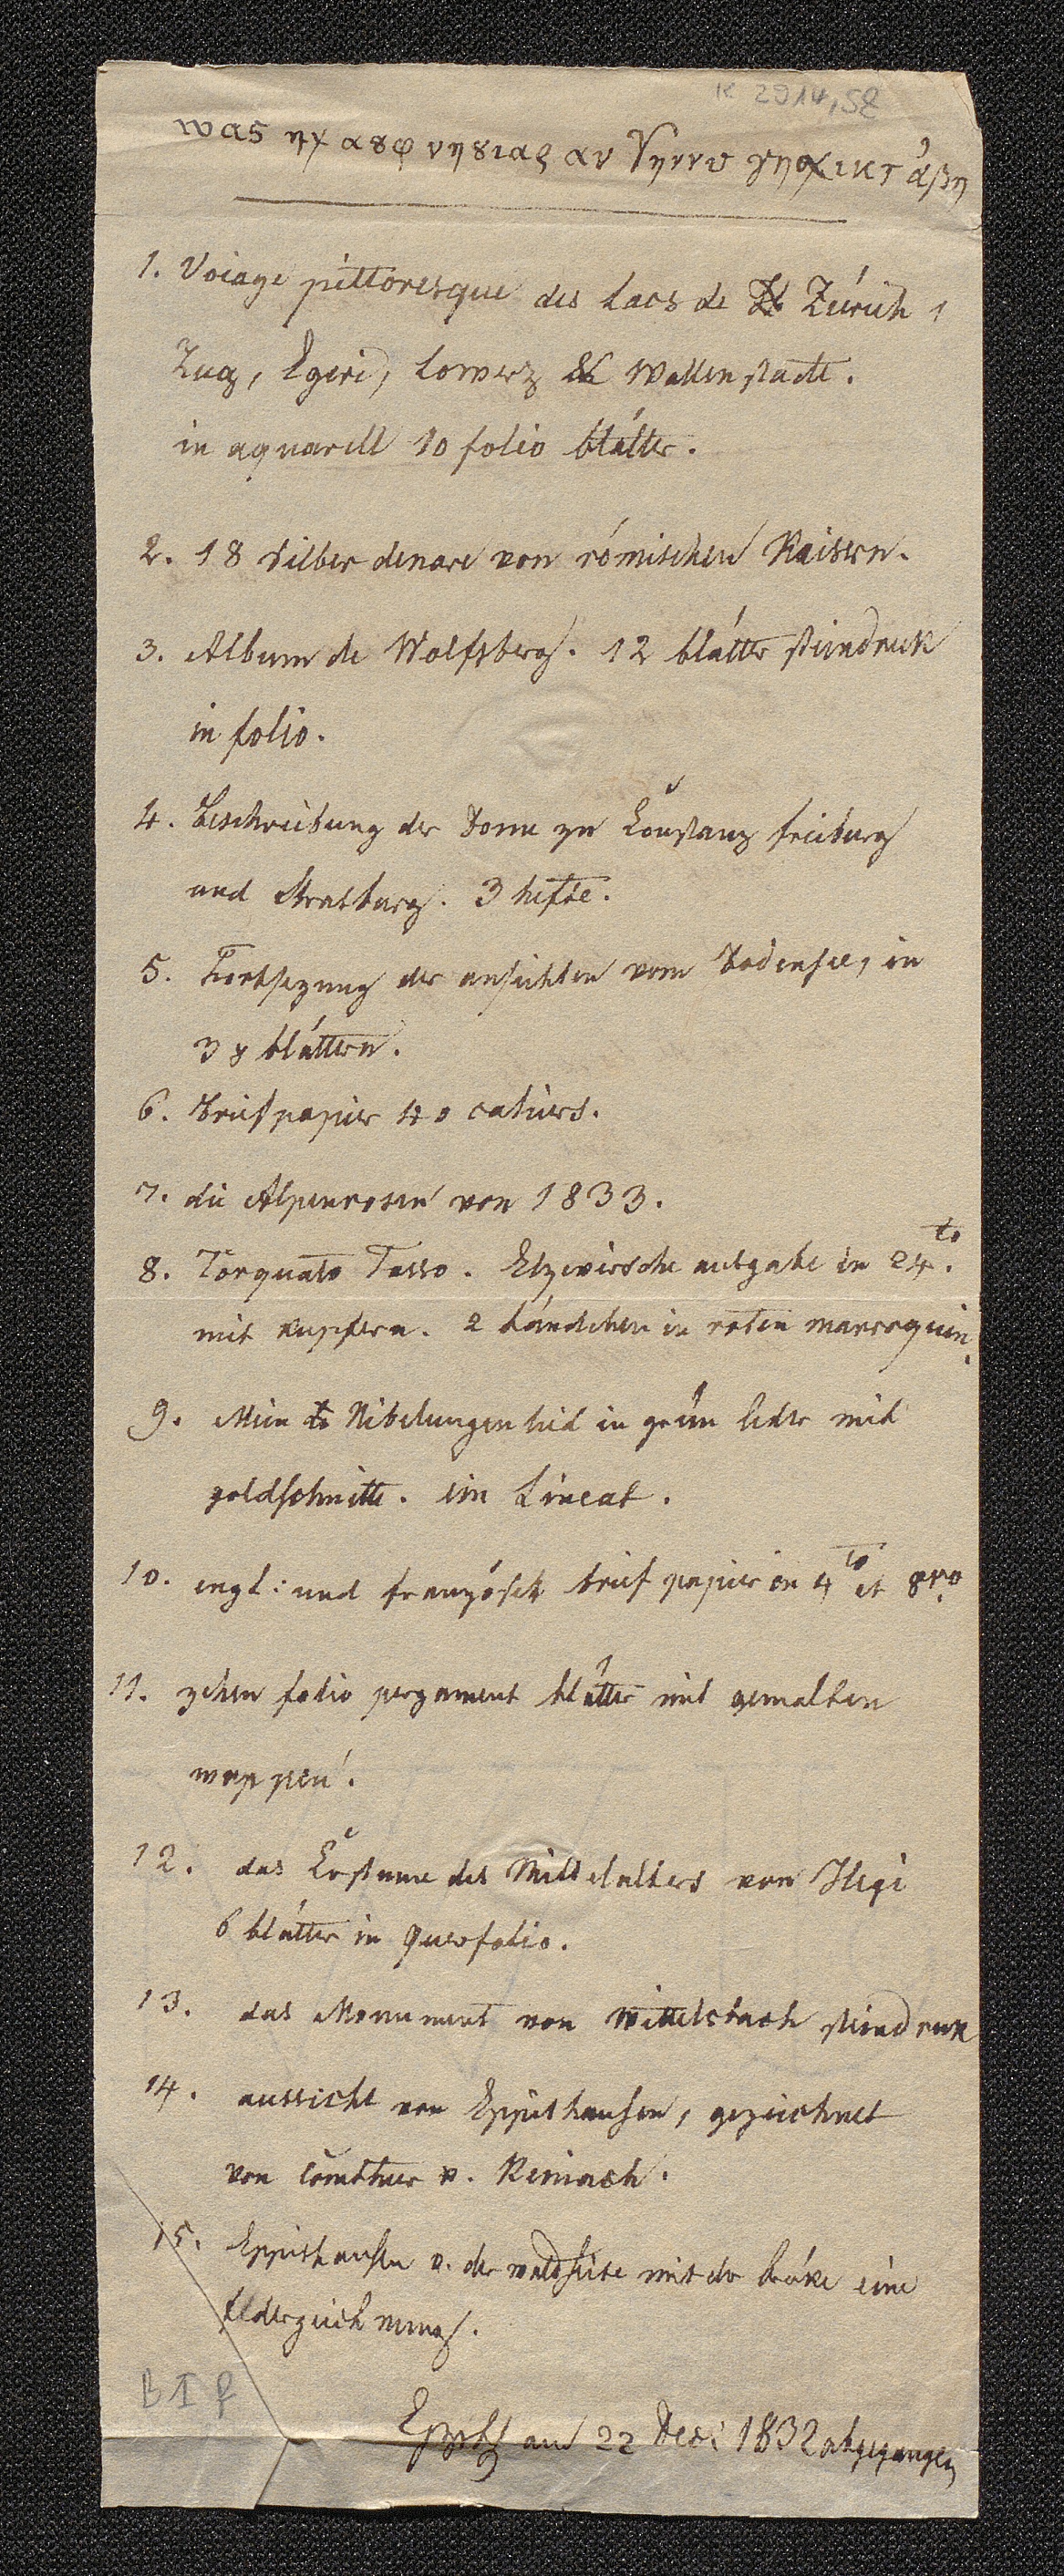 K 2914,52
was ηχ αȣφ νηȣιαϛ αν Υηννυ γηφικτ άβη
1. Voiage pittoresque des Lacs de Zúrich,
Zug, Egeri, Lowerz & Wallenstadt.
in aquarell 10 folio blätter.
2. 18 silber denare von römischen Kaisern.
3. Album de Wolfsberg. 12 blätter steindruk
in folio.
4. Beschreibung der Dome zu Constanz freiburg
und Strasburg. 3 hefte.
5. Fortsezung der ansichten vom Bodensee, in
38 blättern.
6. Briefpapier 40 cahiers.
7. die Alpenrosen von 1833.
8. Torquato Tasso. Elzevirsche ausgabe in 24to.
mit kupfern. 2 bändchen in roten marroquin.
9. Mein Nibelungenlied in grün leder mit
goldschnitte. ein Lineal.
10. engl: und französisch brief papier in 4to et 8vo.
11. zehen folio pergament blätter mit gemalten
wappen.
12. das Costume des Mittelalters von Hegi
6 blätter in querfolio.
13. das Monument von Wittelsbach steindruk
14. aussicht von Eppishausen, gezeichnet
von Comthur v. Reinach.
15. Eppishausen v. der waldseite mit der brüke eine
federzeichnung.
B I f
am 22 Dec: 1832 abgegangen